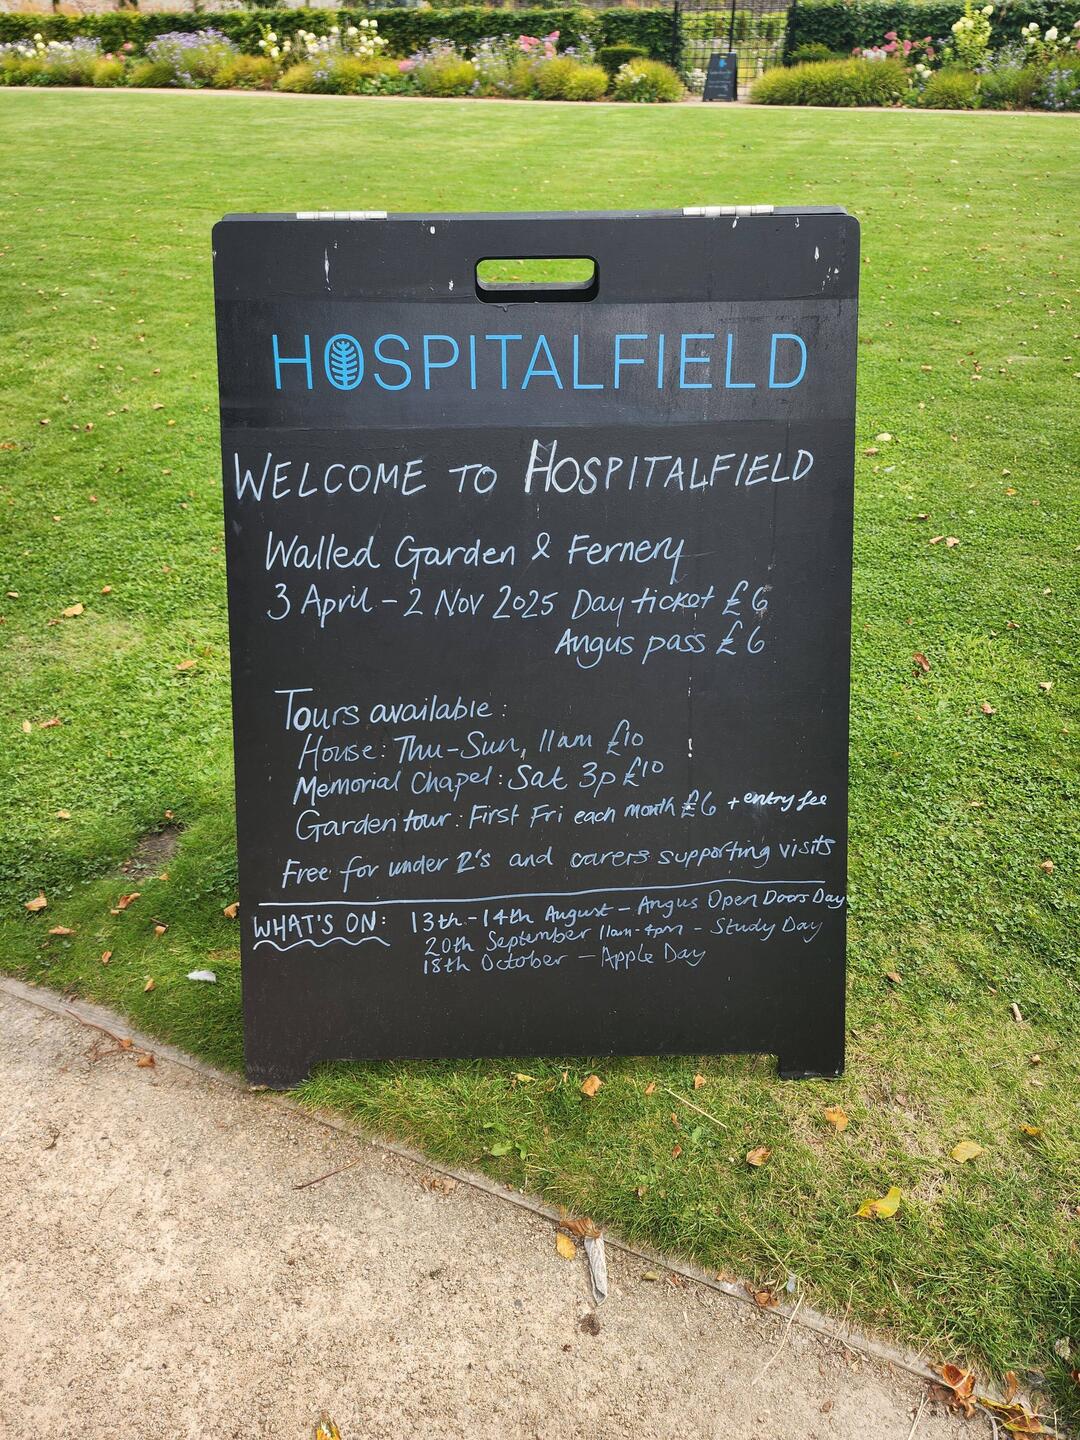 HOSPITALFIELD
WELCOME TO HOSPITALFIELD
Walled Garden & Fernery
3 April - 2 Nov 2025 Day ticket £6
Angus pass £6
Tours available:
House: Thu-Sun, 11am £10
Memorial Chapel: Sat 3p £10
Garden tour: First Fri each month £6 + entry fee
Free for under 12's and carers supporting visits
WHAT'S ON: 13th - 14th August - Angus Open Doors Day
20th September 11am-4pm - Study Day
18th October - Apple Day